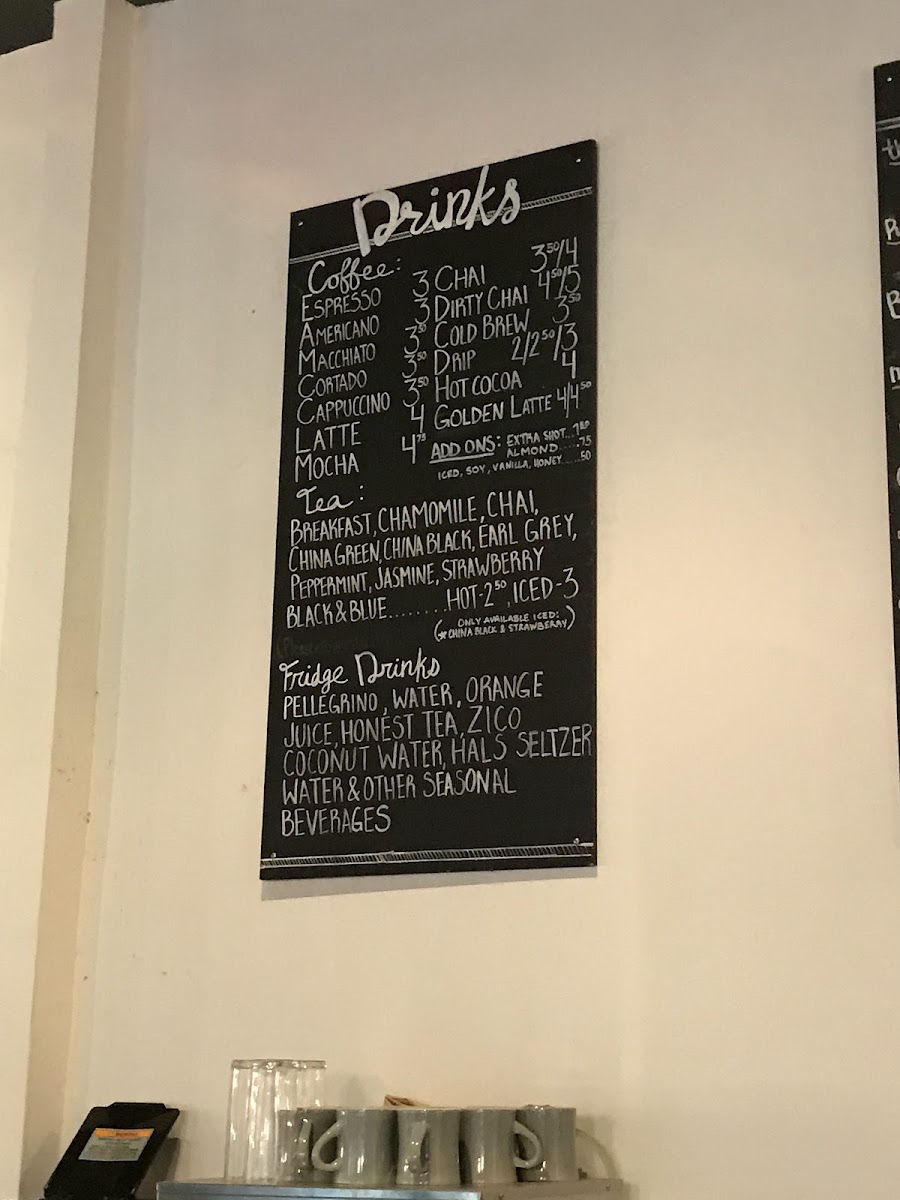 Drinks
Coffee:
ESPRESSO 3
AMERICANO 3
MACCHIATO 3⁵⁰
CORTADO 3⁵⁰
CAPPUCCINO 3⁵⁰
LATTE 4
MOCHA 4⁷⁵
CHAI 3⁵⁰/4
DIRTY CHAI 4⁵⁰/5
COLD BREW 3⁵⁰
DRIP 2/2⁵⁰/3
HOT COCOA 4
GOLDEN LATTE 4/4⁵⁰
ADD ONS: EXTRA SHOT...1⁵⁰
ALMOND.....75
ICED, SOY, VANILLA, HONEY.....50
Tea:
BREAKFAST, CHAMOMILE, CHAI,
CHINA GREEN, CHINA BLACK, EARL GREY,
PEPPERMINT, JASMINE, STRAWBERRY
BLACK & BLUE........HOT-2⁵⁰, ICED-3
(ONLY AVAILABLE ICED:
* CHINA BLACK & STRAWBERRY)
Fridge Drinks
PELLEGRINO, WATER, ORANGE
JUICE, HONEST TEA, ZICO
COCONUT WATER, HALS SELTZER
WATER & OTHER SEASONAL
BEVERAGES